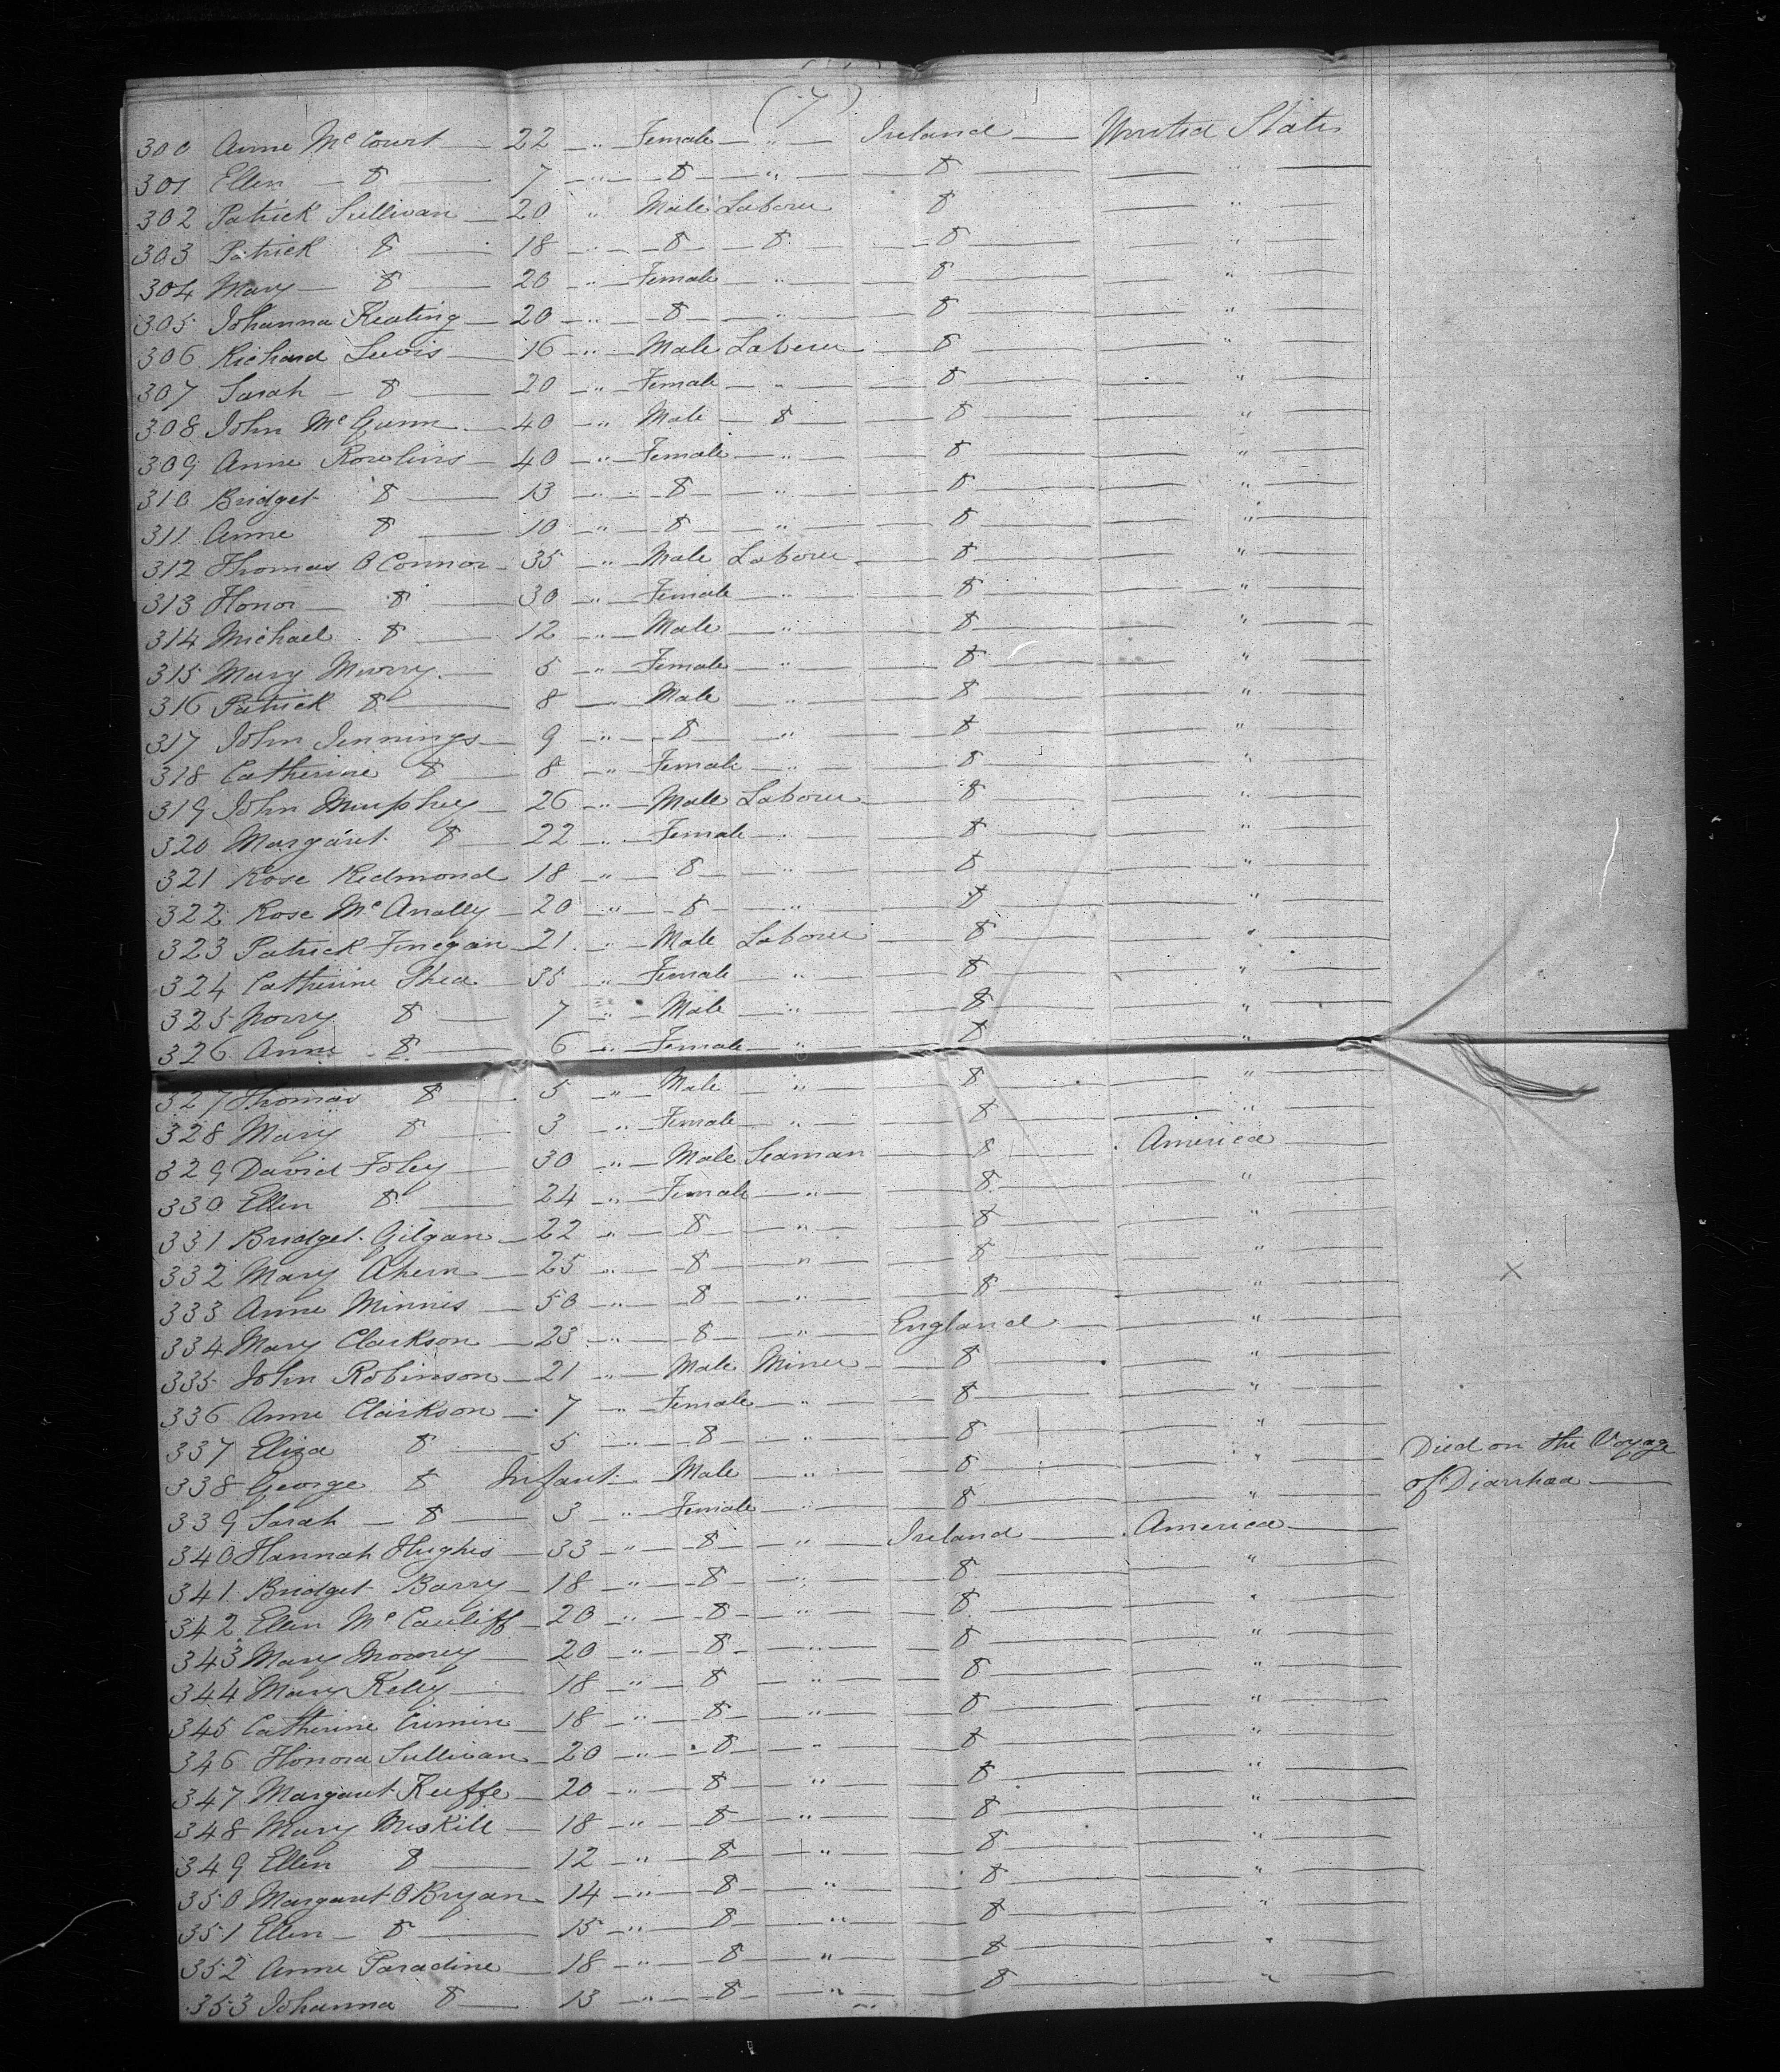 (7)
300 Anne McCourt — 22 " Female " Ireland — United States
301 Ellen — do — 7 — " — do — " — do — "
302 Patrick Sullivan — 20 " Male Laborer do — "
303 Patrick do — 18 — " — do — do — do — "
304 Mary — do — 20 — " — Female — " — do — "
305 Johanna Keating — 20 — " — do — " — do — "
306 Richard Lewis — 16 — " — Male Laborer — do — "
307 Sarah — do — 20 — " — Female — " — do — "
308 John McGunn — 40 — " Male — do — do — "
309 Anne Rowlins — 40 — " — Female — " — do — "
310 Bridget do — 13 — " — do — " — do — "
311 Anne do — 10 — " — do — " — do — "
312 Thomas O Connor — 35 — " — Male Laborer — do — "
313 Honor — do — 30 — " — Female — " — do — "
314 Michael do — 12 — " — Male — " — do — "
315 Mary Murry — 5 — " — Female — " — do — "
316 Patrick do — 8 — " — Male — " — do — "
317 John Jennings — 9 — " — do — " — do — "
318 Catherine do — 8 — " — Female — " — do — "
319 John Murphey — 26 — " — Male Laborer — do — "
320 Margaret do — 22 — " — Female — " — do — "
321 Rose Redmond 18 — " — do — " — do — "
322 Rose McAnally — 20 — " — do — " — do — "
323 Patrick Finegan — 21 — " — Male Laborer — do — "
324 Catherine Shea — 35 — " — Female — " — do — "
325 do — 7 — " — Male — " — do — "
326 Anne — do — 6 — " — Female — " — do — "
327 Thomas do — 5 — " — Male — " — do — "
328 Mary do — 3 — " — Female — " — do — "
329 David Foley — 30 — " — Male Seaman — do — America —
330 Ellen do — 24 — " — Female — " — do — "
331 Bridget Gilgan — 22 — " — do — " — do — "
332 Mary Ahern — 25 — " — do — " — do — " X
333 Anne Minnis — 50 — " — do — " — do — "
334 Mary Clarkson — 23 — " — do — " — England — "
335 John Robinson — 21 — " — Male Miner — do — "
336 Anne Clarkson — 7 — " — Female — " — do — "
337 Eliza do — 5 — " — do — " — do — "
338 George do Infant — Male — " — do — " Died on the Voyage
of Diarrhaa —
339 Sarah — do — 3 — " — Female — " — do — "
340 Hannah Hughes — 33 — " — do — " — Ireland — America —
341 Bridget Barry — 18 — " — do — " — do — "
342 Ellen McCauliff — 20 — " — do — " — do — "
343 Mary — 20 — " — do — " — do — "
344 Mary Kelly — 18 — " — do — " — do — "
345 Catherine Crimin — 18 — " — do — " — do — "
346 Honora Sullivan — 20 — " — do — " — do — "
347 Margaret Keeffe — 20 — " — do — " — do — "
348 Mary — 18 — " — do — " — do — "
349 Ellen do — 12 — " — do — " — do — "
350 Margaret O Bryan — 14 — " — do — " — do — "
351 Ellen — do — 15 — " — do — " — do — "
352 Anne Paradine — 18 — " — do — " — do — "
353 Johanna do — 13 — " — do — " — do — "